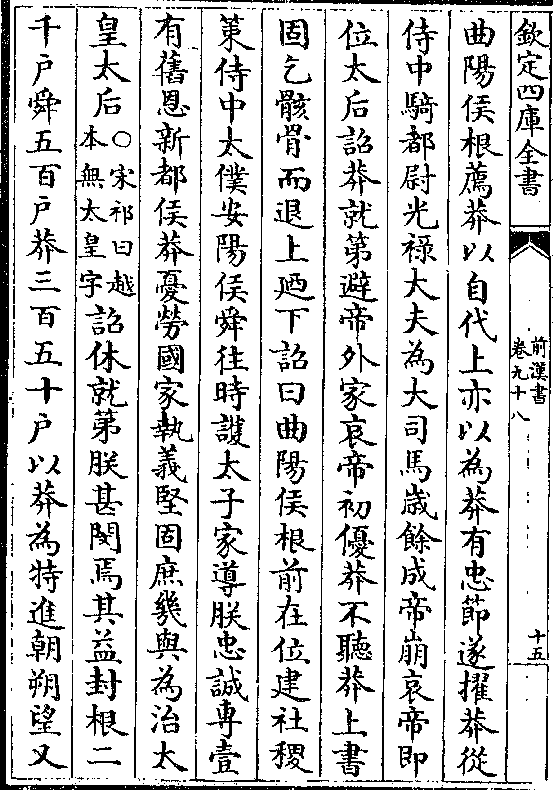 欽定四庫全書
前漢書
卷九十八
十五
曲陽侯根薦莽以自代上亦以為莽有忠節遂擢莽從
侍中騎都尉光祿大夫為大司馬歲餘成帝崩哀帝即
位太后詔莽就第避帝外家哀帝初優莽不聽莽上書
固乞骸骨而退上廼下詔曰曲陽侯根前在位建社稷
策侍中太僕安陽侯舜往時護太子家導朕忠誠專壹
有舊恩新都侯莽憂勞國家執義堅固庶幾與為治太
皇太后○宋祁曰越本無太皇字詔休就第朕甚閔焉其益封根二
千戶舜五百戶莽三百五十戶以莽為特進朝朔望又